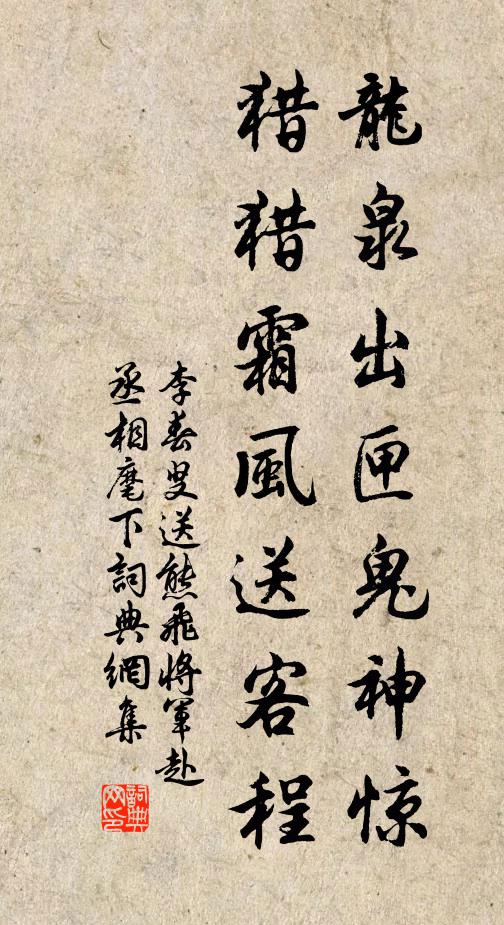 龍泉出匣鬼神惊
猎猎霜風送客程
李春叟送熊飛將軍赴
丞相麾下詞典網集
詞典網印